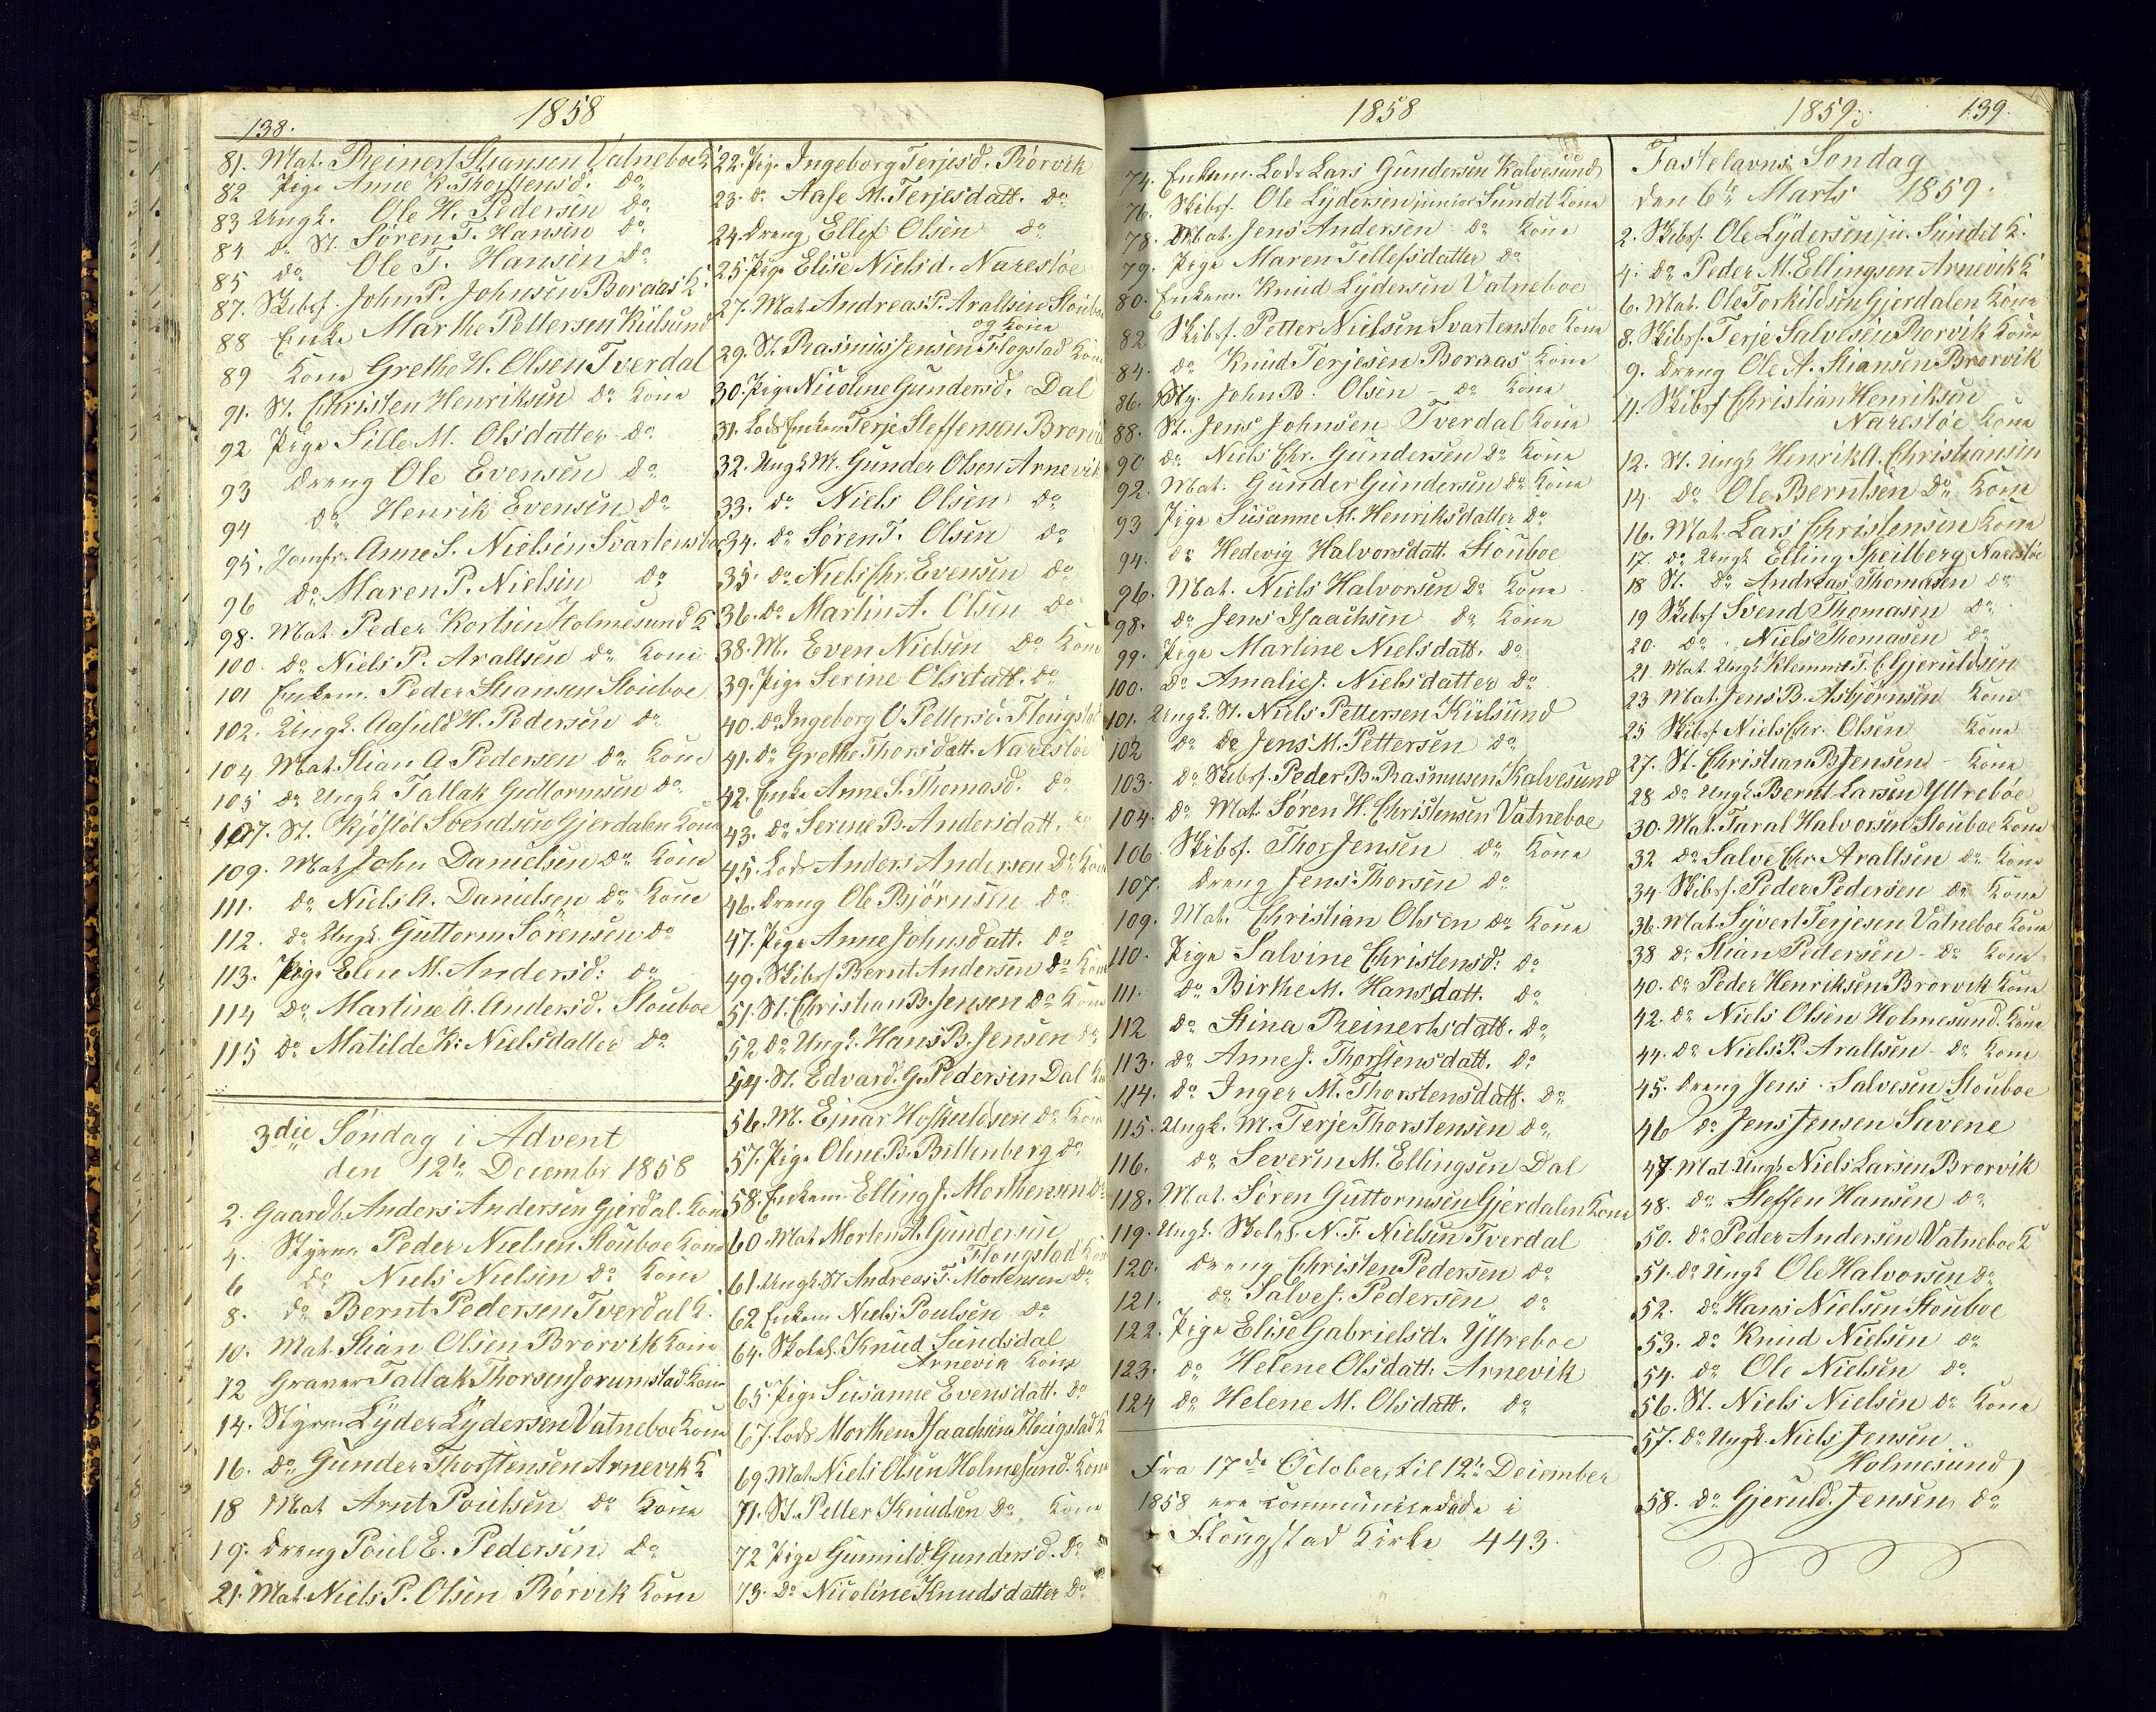 138.
1858
81. Mat. Reinert Stiansen Vatneboe K
82 Pige Anne K. Thorstensd. do
83 Ungk. Ole H. Pedersen do
84 do St. Søren T. Hansen do
85 do Ole T. Hansen do
87. Skibsf. John P. Johnsen Boraas K.
88 Enke Marthe Pettersen Kielsund
89 Kone Grethe H. Olsen Tverdal
91. St. Christen Henriksen do Kone
92 Pige Sille M. Olsdatter do
93 Dreng Ole Evensen do
94 do Henrik Evensen do
95. Jomfr. Anne S. Nielsen Svartensboe
96 do Maren P. Nielsen do
98. Mat. Peder Kortsen Holmesund K
100. do Niels P. Araltsen do Kone
101 Enkem. Peder Stiansen Stouboe
102. Ungk. Aasuld H. Pedersen do
104 Mat. Stian A. Pedersen do Kone
105 do Ungk. Tallak Guttormsen do
107. St. Kjøstøl Svendsen Gjerdalen Kone
109. Mat. John Danielsen do Kone
111. do Niels A. Danielsen do Kone
112. do Ungk. Guttorm Sørensen do
113. Pige Elen M. Andersd: do
114 do Martine A. Andersd. Stouboe
115 do Matilde K. Nielsdatter do
3die Søndag i Advent
den 12te Decembr 1858
2. Gaardb. Anders Andersen Gjerdal. Kone
4. Styrm. Peder Nielsen Stouboe Kone
6 do Niels Nielsen do Kone
8. do Bernt Pedersen Tverdal K.
10. Mat. Stian Olsen Brorvik Kone
12 Graver Tallak Thorsen Jorumstad Kone
14. Styrm. Lyder Lydersen Vatneboe Kone
16. do Gunder Thorstensen Arnevik K
18 Mat Arnt Poulsen do Kone
19. Dreng Poul E. Pedersen do
21. Mat. Niels P. Olsen Rørvik Kone
22. Pige Ingeborg Terjesd. Rørvik
23. do Aase M. Terjesdatt. do
24. Dreng Ellef Olsen do
25. Pige Elise Nielsd. Narestøe
27. Mat. Andreas P. Araltsen Stoubo
og Kone
29. St. Rasmus Jensen Flogstad Kone
30. Pige Nicoline Gundersd. Dal
31. Lods Enkem Terje Steffensen Brorvi
32. Ungk. M. Gunder Olsen Arnevik
33. do Niels Olsen do
34. do Søren T. Olsen do
35. do Niels Chr. Evensen do
36. do Martin A. Olsen do
38. M. Even Nielsen do Kone
39. Pige Serine Olsdatt. do
40. do Ingeborg O. Pettersd. Flougstad
41. do Grethe Thorsdatt. Narestøe
42. Enke Anne S. Thomasd. do
43. do Serine B. Andersdatt. do
45. Lods Anders Andersen do Kone
46. Dreng Ole Bjørnsen do
47. Pige Anne Johnsdatt. do
49. Skibsf. Bernt Andersen do Kone
51. St. Christian B. Jensen do Kone
52 do Ungk. Hans B. Jensen do
54. St. Edvard G. Pedersen Dal Ko
56. M. Ejnar Hoskuldsen do Kone
57. Pige Oline B. Biltenberg do
58. Enkem. Elling J. Morthensen do
60. Mat. Morten A. Gundersen
Flougstad Kone
61. Ungk. St Andreas T. Mortensen do
62 Enkem Niels Poulsen do
64. Skoleh. Knud Sundsdal
Arnevik Kone
65 Pige Susanne Evensdatt. do
67. Lods Morthen Isaachsen Flougstad K
69 Mat. Niels Olsen Holmesund. Kone
71. St. Petter Knudsen do Kone
72 Pige Gunnild Gundersd. do
73. do Nicoline Knudsdatter do
1858
1859.
139.
74. Enkem. Lods Lars Gundersen Kalvesund
76. Skibsf. Ole Lydersen junior Sundet Kone
78. Mat. Jens Andersen do Kone
79. Pige Maren Tellefsdatter do
80. Enkem. Knud Lydersen Vatneboe
82 Skibsf. Petter Nielsen Svartensboe Kone
84. do Knud Terjesen Boraas Kone
86. Sty. John B. Olsen - do Kone
88. St. Jens Johnsen Tverdal Kone
90 do Niels Chr. Gundersen do Kone
92. Mat. Gunder Gundersen do Kone
93 Pige Susanne M. Henriksdatter do
94. do Hedevig Halvorsdatt. Stouboe
96. Mat. Niels Halvorsen do Kone
98. do Jens Isaachsen do Kone
99. Pige Martine Nielsdatt. do
100. do Amalie J. Nielsdatter do
101. Ungk. St. Niels Pettersen Kielsund
102 do do Jens M. Pettersen do
103. do Skibsf. Peder B. Rasmusen Kalvesund
104. do Mat. Søren H. Christensen Vatneboe
106 Skibsf. Thor Jensen do Kone
107. Dreng Jens Thorsen do
109. Mat. Christian Olsen do Kone
110. Pige Salvine Christensd: do
111. do Birthe M. Hansdatt. do
112 do Stina Reinertsdatt. do
113. do Anne J. Thorstensdatt. do
114. do Inger M. Thorstensdatt. do
115. Ungk. M. Terje Thorstensen do
116. do Severin M. Ellingsen Dal
118. Mat. Søren Guttormsen Gjerdalen Kone
119. Ungk. Skoleh. N. F. Nielsen Tverdal
120. Dreng Christen Pedersen do
121. do Salve J. Pedersen do
122. Pige Elise Gabrielsd. Yttreboe
123. do Helene Olsdatt. Arnevik
124 do Helene M. Olsdatt. do
Fra 17de October til 12te December
1858 ere Communicerede i
Flougstad Kirke 443.
Fastelavns Søndag
den 6te Marts 1859.
2. Skibsf. Ole Lydersen ju. Sundet K.
4. do Peder M. Ellingsen Arnevik K
6. Mat. Ole Torkildsen Gjerdalen Kone
8. Skibsf. Terje Salvesen Rørvik Kone
9. Dreng Ole A. Stiansen Brorvik
11. Skibsf Christian Henriksen
Narestøe Kone
12. St. Ungk Henrik A. Christiansen
14. do Ole Berntsen do Kone
16. Mat. Lars Christensen Kone
17. do Ungk Elling Speilberg Narestøe
18 St. do Andreas Thomasen do
19 Skibsf Svend Thomasen do
20. do Niels Thomasen do
21 Mat. Ungk Klemmet T. C. Gjeruldsen
23 Mat. Jens B. Asbjørnsen Kone
25 Skibsf. Niels Chr. Olsen Kone
27. St. Christian B. Jensen - Kone
28 do Ungk. Bernt Larsen Yttreboe
30. Mat. Taral Halvorsen Stouboe Kone
32 do Salve Chr. Araltsen do Kone
34. Skibsf. Peder Pedersen do Kone
36. Mat. Syvert Terjesen Vatneboe Kone
38 do Stian Pedersen - do Kone
40. do Peder Henriksen Brorvik Kone
42. do Niels Olsen Holmesund. Kone
44. do Niels P. Araltsen - do Kone
45. Dreng Jens Salvesen Stouboe
46 do Jens Jensen Savene
47. Mat. Ungk Niels Larsen Brorvik
48. do Steffen Hansen do
50. do Peder Andersen Vatneboe K
51. do Ungk Ole Halvorsen do
52. do Hans Nielsen Stouboe
53. do Knud Nielsen do
54. do Ole Nielsen do
56. St. Niels Nielsen do Kone
57. do Ungk. Niels Jensen
Holmesund
58. do Gjeruld Jensen do